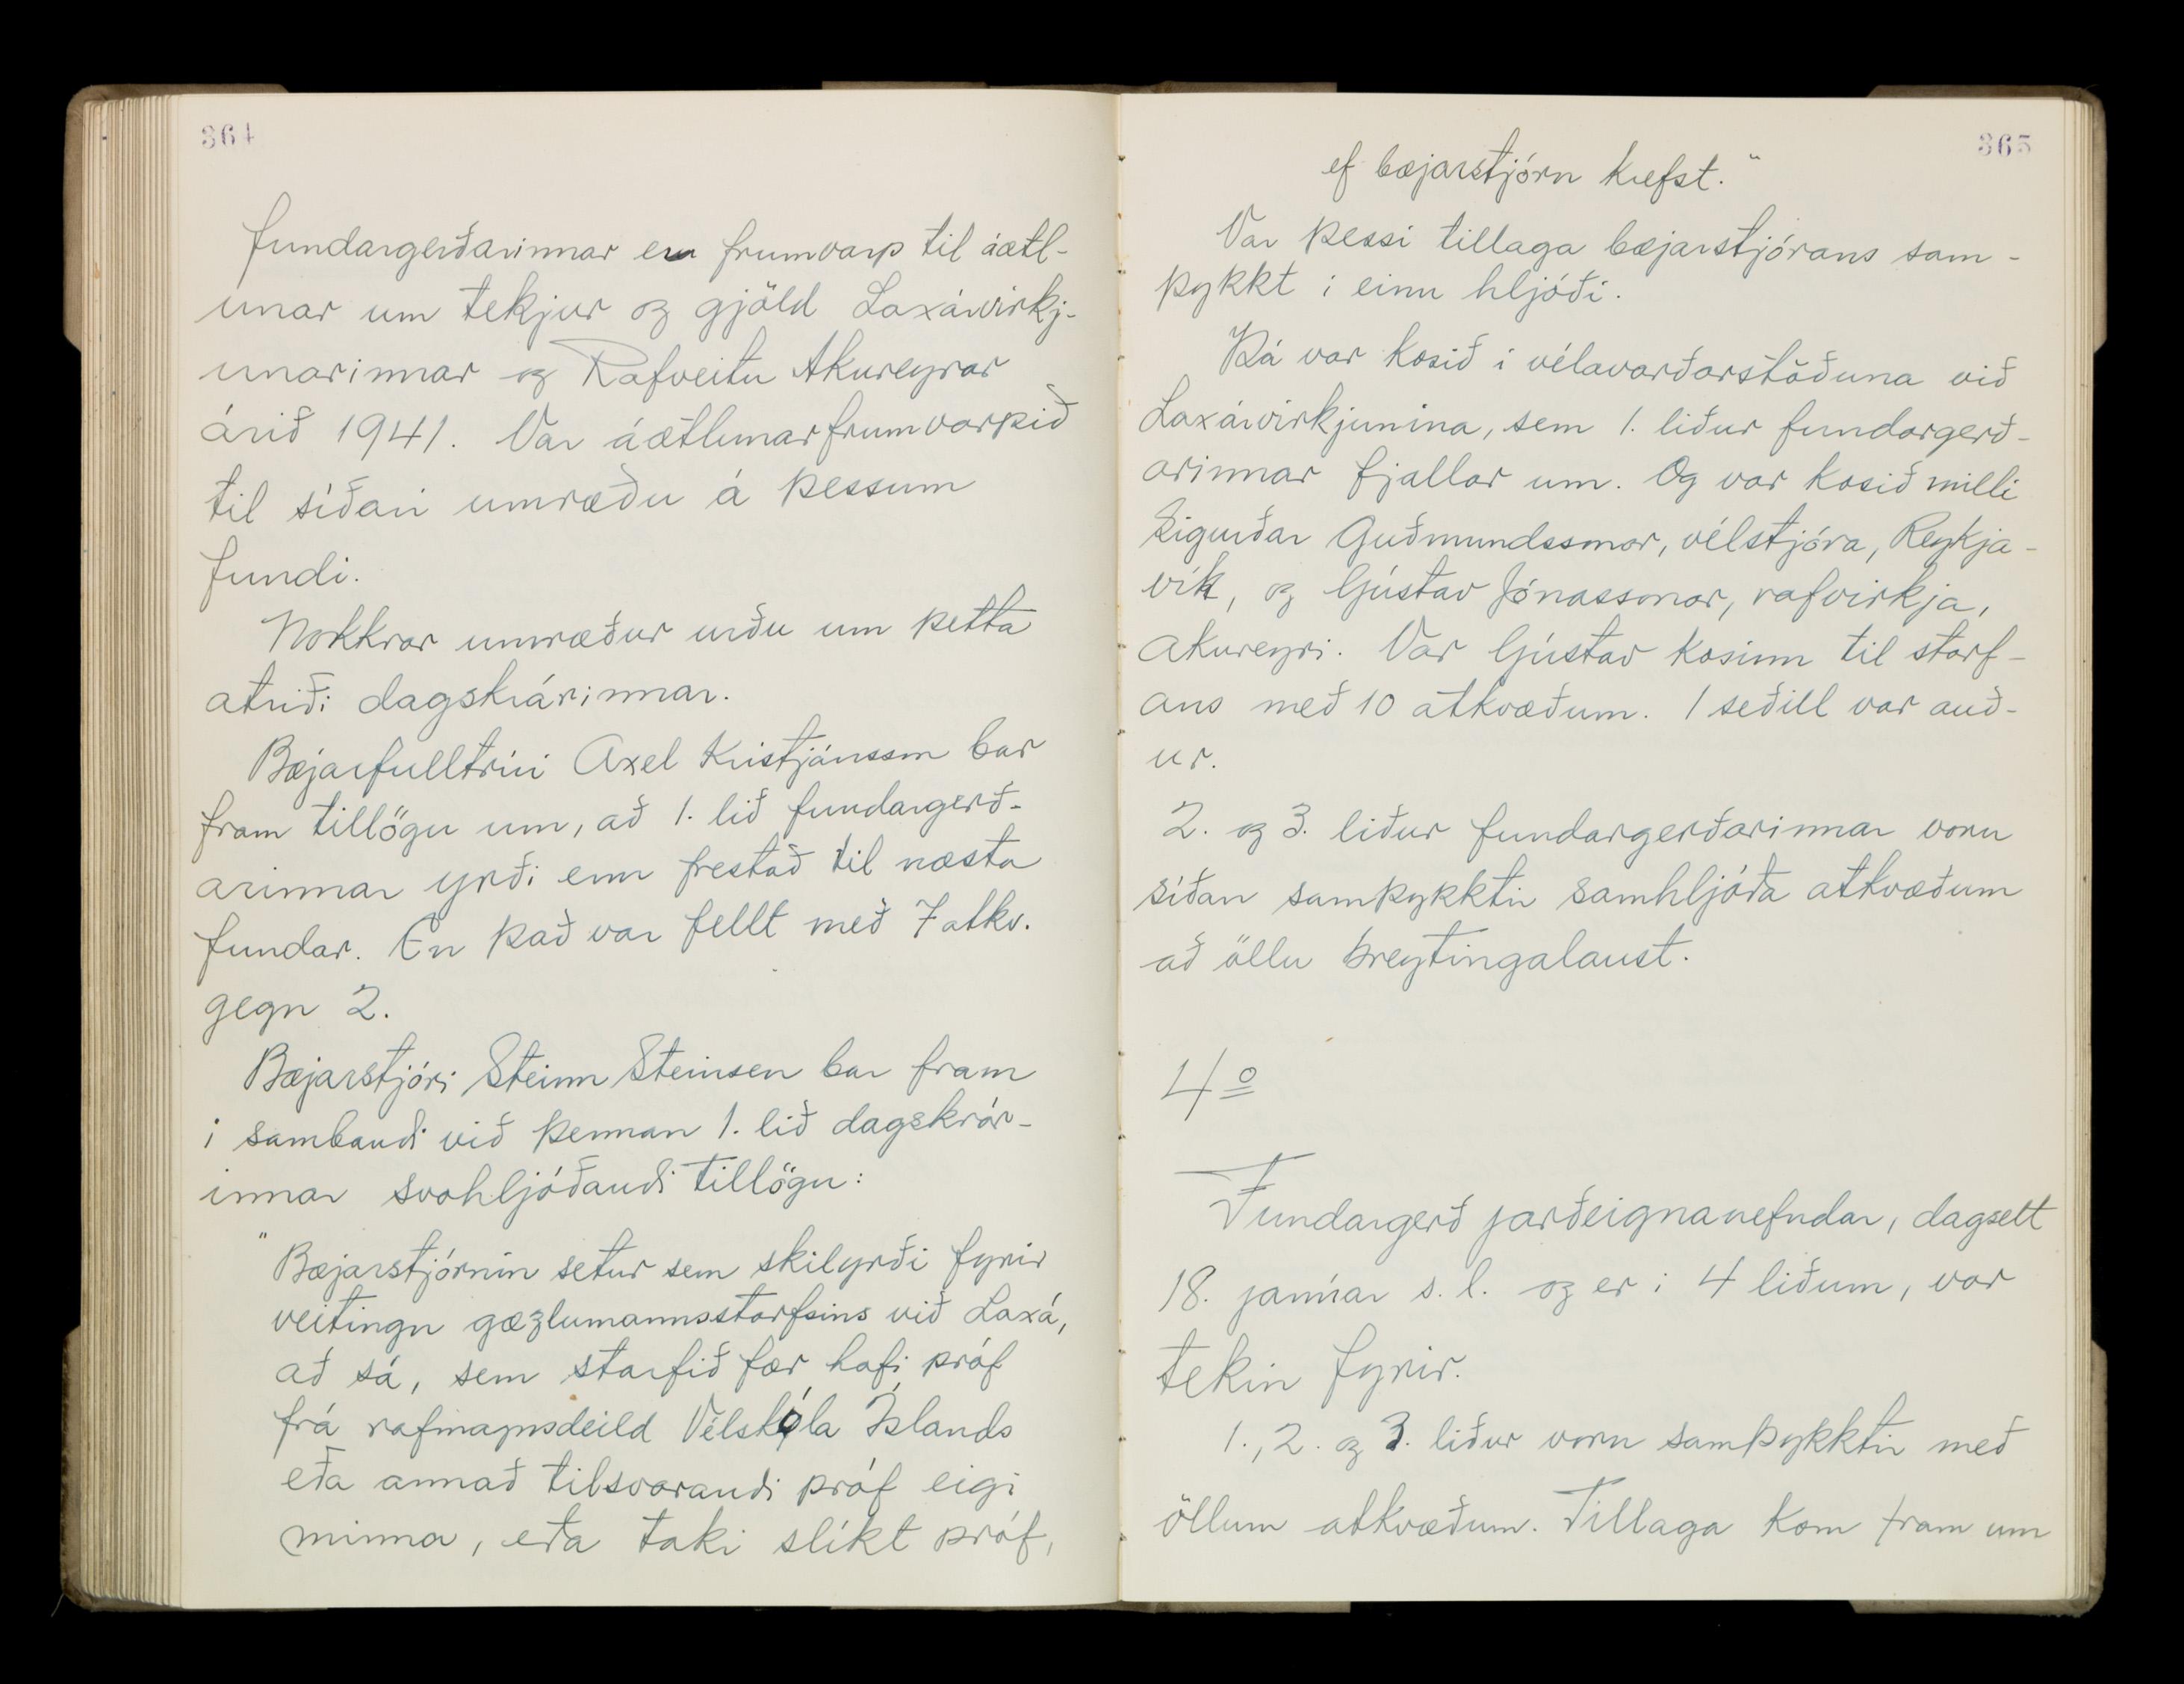 364
fundargerðarinnar eru frumvarp til áætl-
unar um tekjur og gjöld Laxárvirkj-
unarinnar og Rafveitu Akureyrar
árið 1941. Var áætlunarfrumvarpið
til síðari umræðu á þessum
fundi.
Nokkrar umræður urðu um þetta
atriði dagskrárinnar.
Bæjarfulltrúi Axel Kristjánsson bar
fram tillögu um, að 1. lið fundargerð-
arinnar yrði enn frestað til næsta
fundar. En það var fellt með 7 atkv.
gegn 2.
Bæjarstjóri Steinn Steinsen bar fram
í sambandi við þennan 1. lið dagskrár-
innar svohljóðandi tillögu:
"Bæjarstjórnin setur sem skilyrði fyrir
veitingu gæzlumannsstarfsins við Laxá,
að sá, sem starfið fær hafi próf
frá rafmagnsdeild Vélskóla Íslands
eða annað tilsvarandi próf eigi
minna, eða taki slíkt próf,
365
ef bæjarstjórn krefst."
Var þessi tillaga bæjarstjórans sam-
þykkt í einu hljóði.
Þá var kosið í vélavarðarstöðuna við
Laxárvirkjunina, sem 1. liður fundargerð-
arinnar fjallar um. Og var kosið milli
Sigurðar Guðmundssonar, vélstjóra, Reykja-
vík, og Gústav Jónassonar, rafvirkja,
Akureyri. Var Gústav kosinn til starf-
ans með 10 atkvæðum. 1 seðill var auð-
ur.
2. og 3. liður fundargerðarinnar voru
síðan samþykktir samhljóða atkvæðum
að öllu breytingalaust.
4º
Fundargerð jarðeignanefndar, dagsett
18. janúar s. l. og er í 4 liðum, var
tekin fyrir.
1., 2. og 3. liður voru samþykktir með
öllum atkvæðum. Tillaga kom fram um